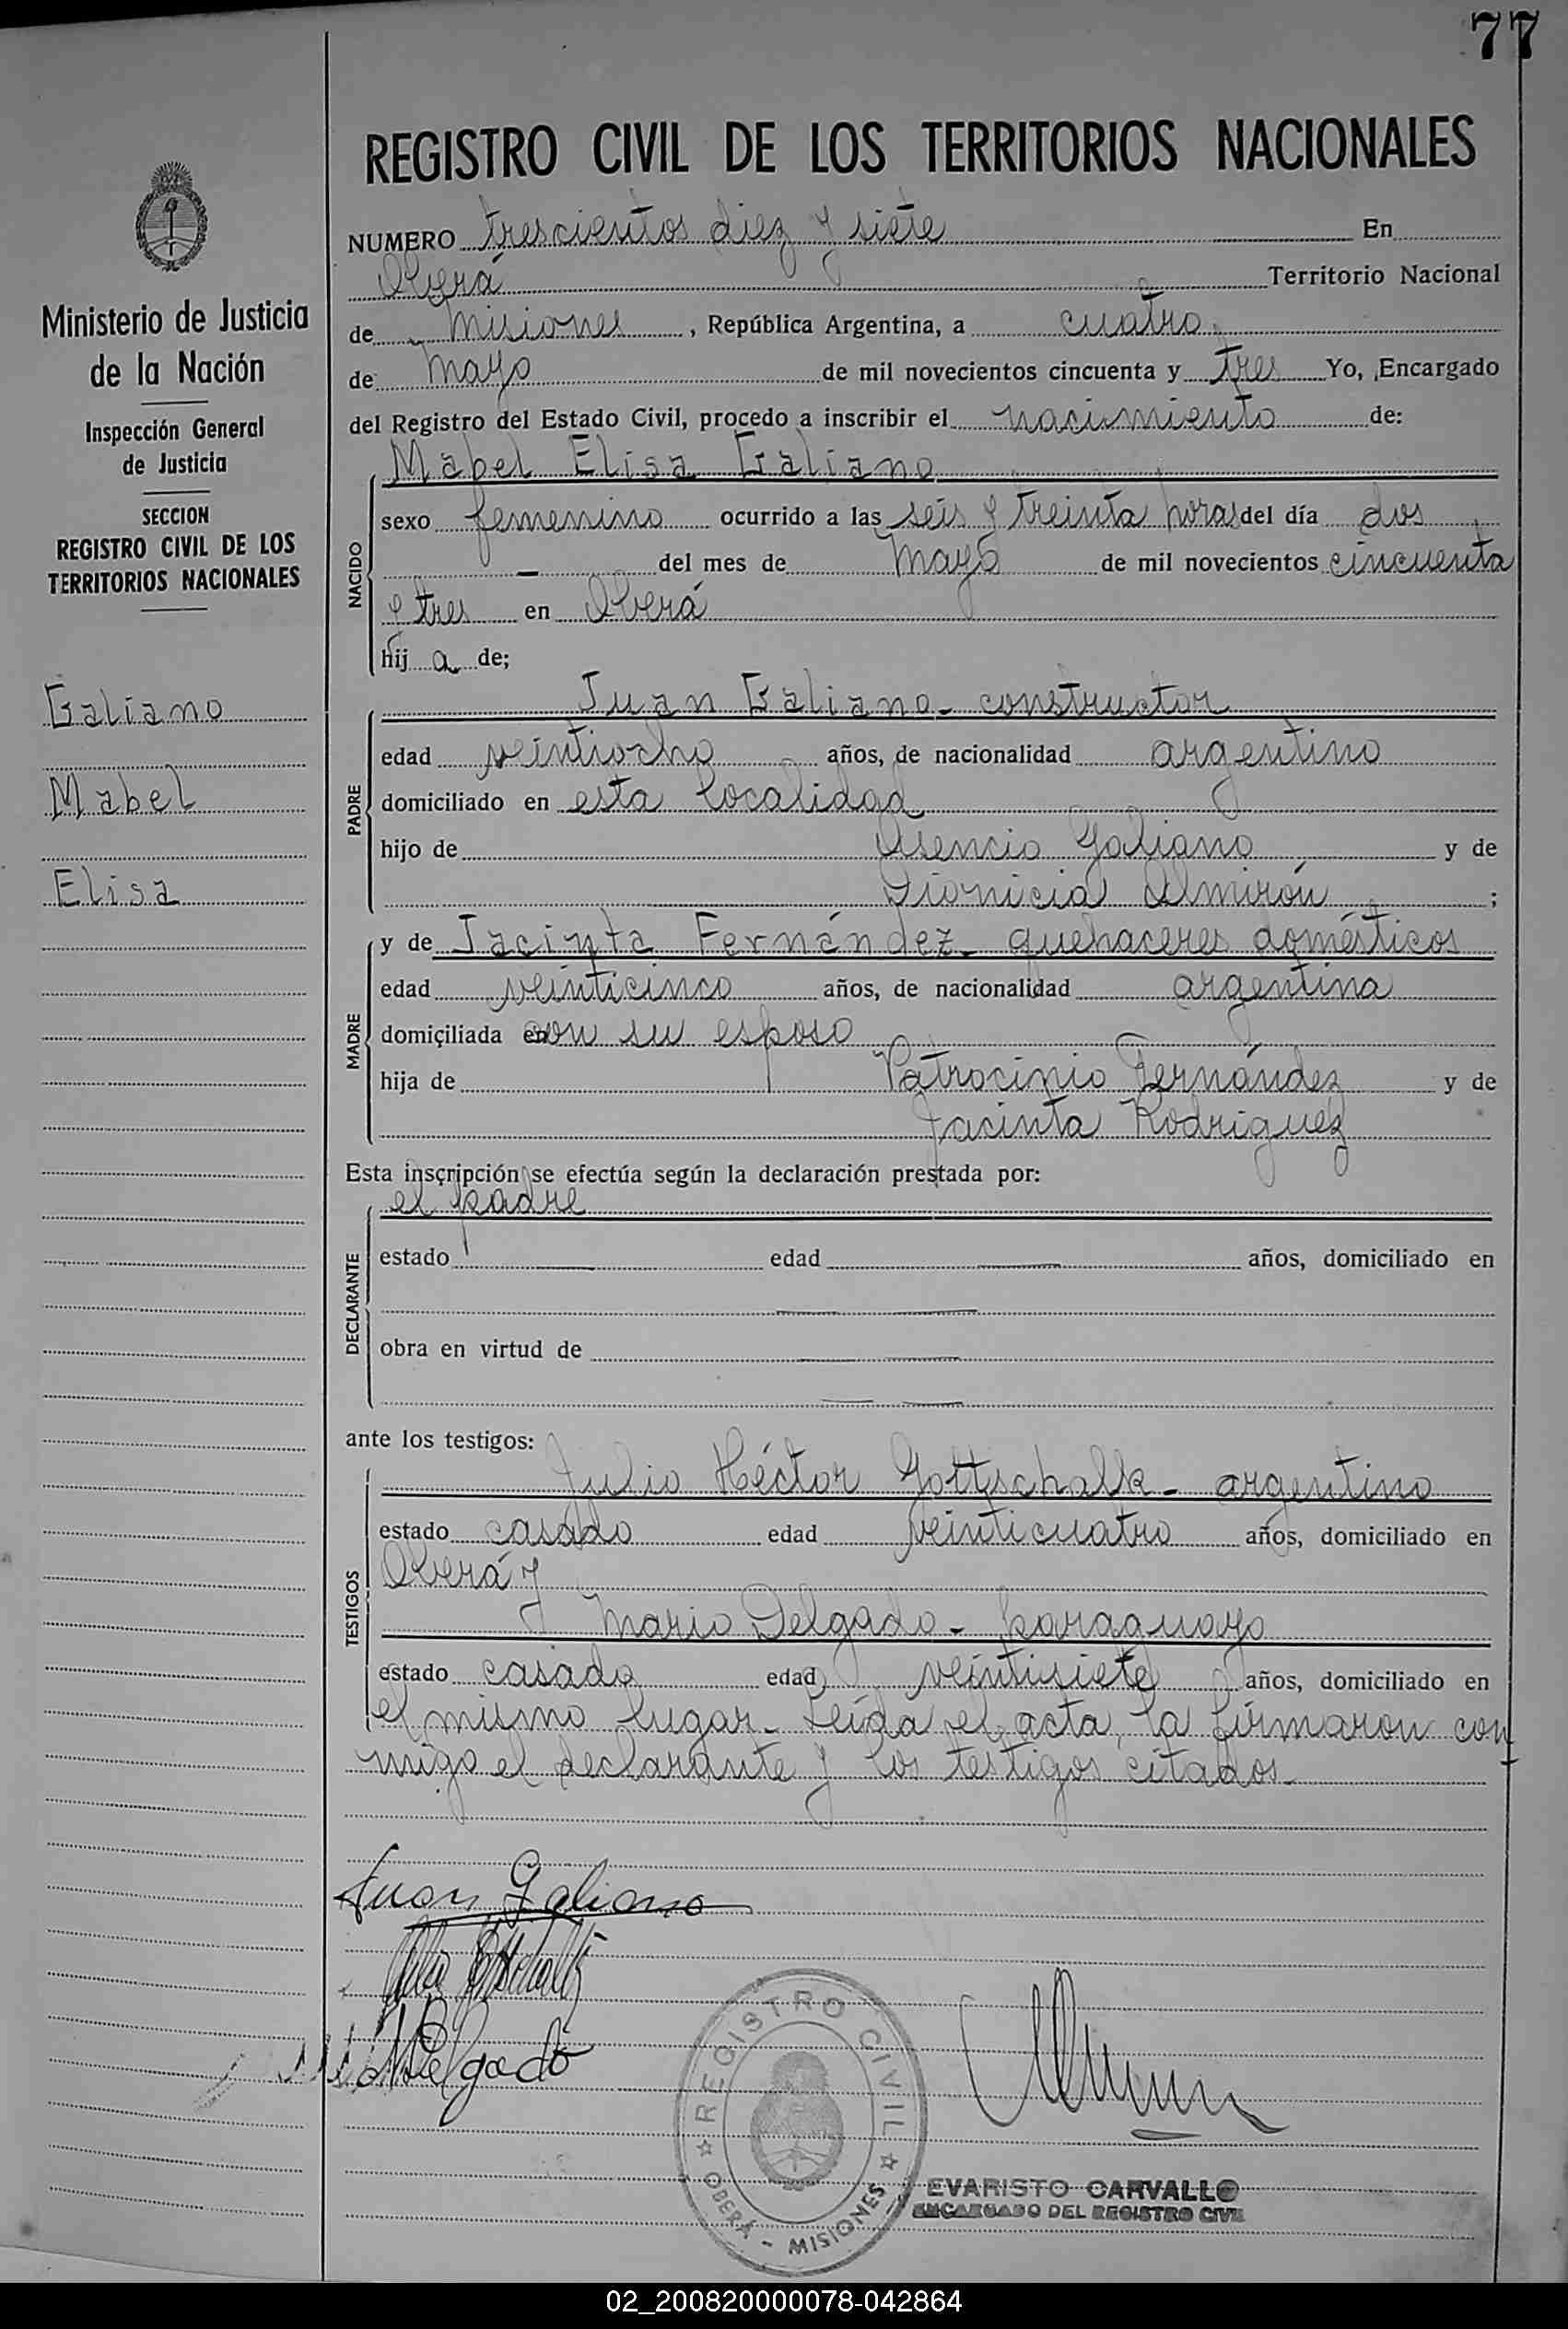 77
REGISTRO CIVIL DE LOS TERRITORIOS NACIONALES
NUMERO trescientos diez y siete En
Oberá Territorio Nacional
de misiones, República Argentina, a cuatro
de mayo de mil novecientos cincuenta y tres Yo, Encargado
del Registro del Estado Civil, procedo a inscribir el nacimiento de:
Mabel Elisa Galiano
NACIDO
sexo femenino ocurrido a las seis y treinta horas del día dos
— del mes de mayo de mil novecientos cincuenta
y tres en Oberá
hij a de;
PADRE
Juan Galiano - constructor
edad veintiocho años, de nacionalidad argentino
domiciliado en esta localidad
hijo de Asencio Galiano y de
Dionicia Almirón ;
MADRE
y de Jacinta Fernández - quehaceres domésticos
edad veinticinco años, de nacionalidad argentina
domiciliada en con su esposo
hija de Patrocinio Fernández y de
Jacinta Rodriguez
Esta inscripción se efectúa según la declaración prestada por:
DECLARANTE
el padre
estado — edad — años, domiciliado en
— —
obra en virtud de — —
— —
ante los testigos:
TESTIGOS
Julio Héctor Gottschalk - argentino
estado casado edad veinticuatro años, domiciliado en
Oberá y
Mario Delgado - paraguayo
estado casado edad veintisiete años, domiciliado en
el mismo lugar - Leída el acta, la firmaron con
migo el declarante y los testigos citados -
Juan Galiano
Delgado
REGISTRO CIVIL
OBERÁ - MISIONES
EVARISTO CARVALLO
ENCARGADO DEL REGISTRO CIVIL
Ministerio de Justicia
de la Nación
Inspección General
de Justicia
SECCION
REGISTRO CIVIL DE LOS
TERRITORIOS NACIONALES
Galiano
Mabel
Elisa
02_200820000078-042864